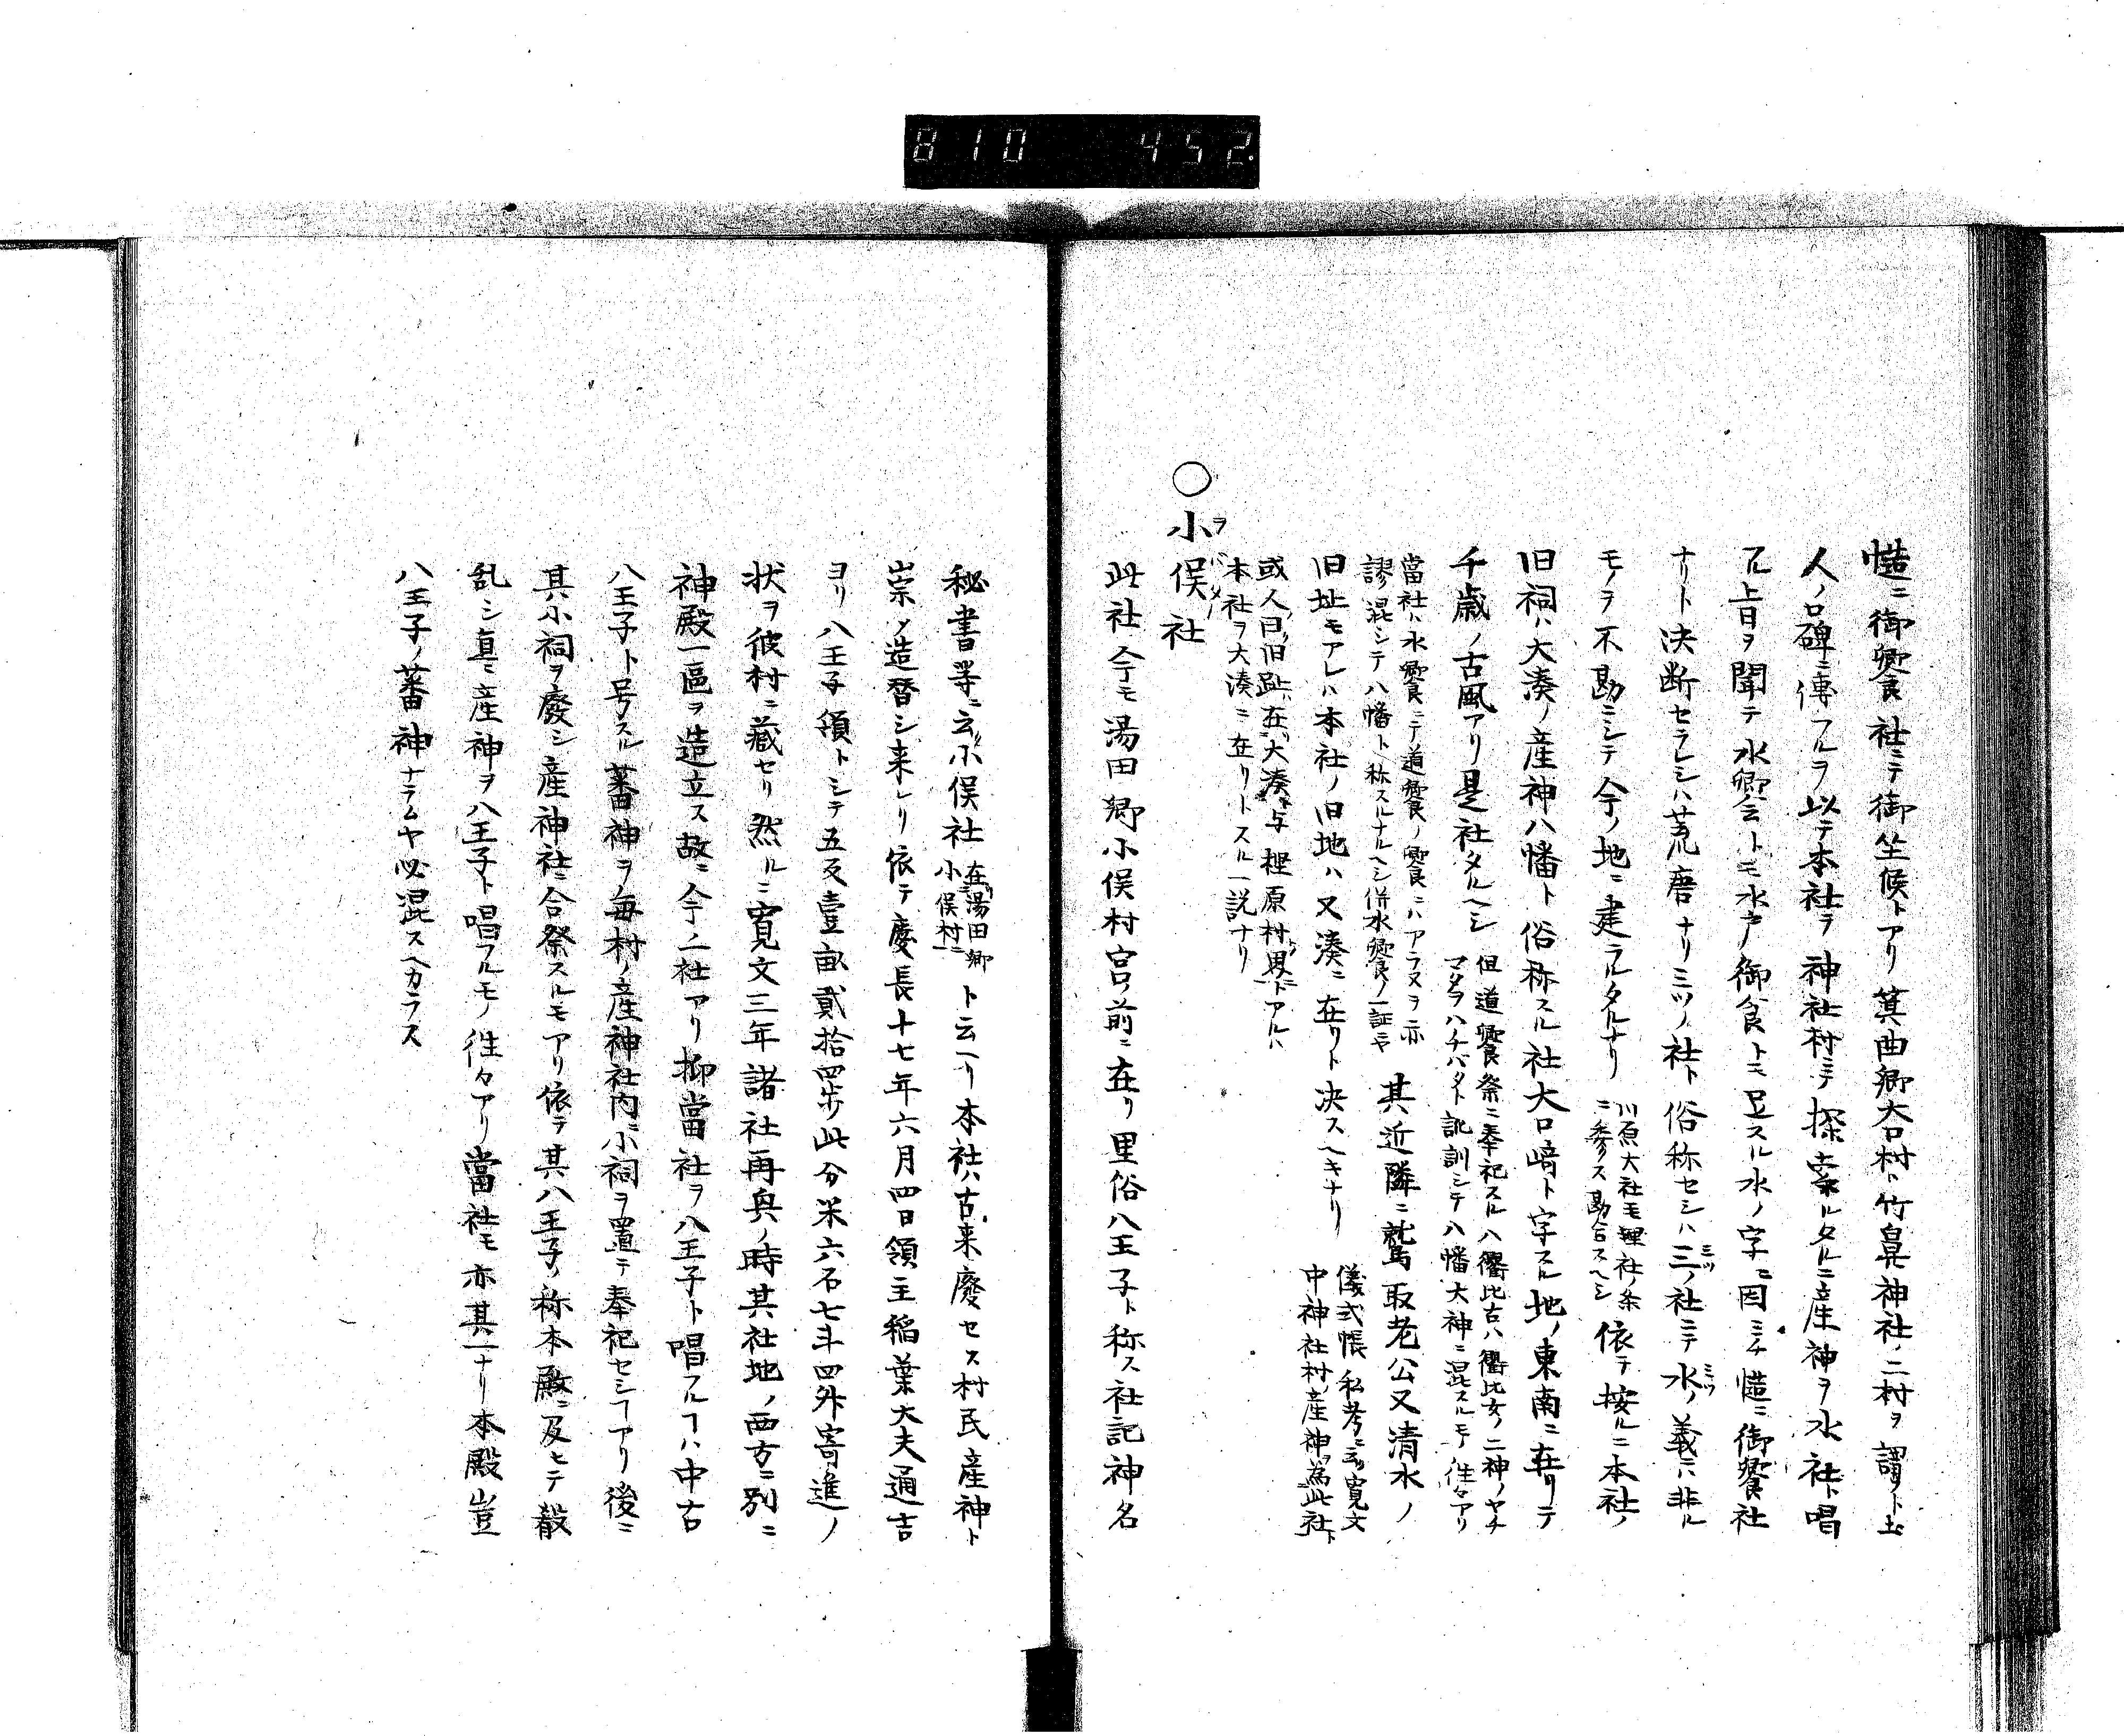 810 452.
慥ニ御饗社ニテ御坐候トアリ箕曲郷大口村ト竹鼻神社ノ二村ヲ謂フト土
人ノ口碑ニ傳フルヲ以テ本社ヲ神社村ニテ探索ルタルニ産神ヲ水社ト唱
フル上日ヲ聞テ水饗会トモ水戸御食トモ呈スル水ノ字ニ因ミテ慥ニ御饗社
ナリト決断セラレシハ荒唐ナリミツノ社ト俗称セシハ三ノ社ニテ水ノ義ニハ非ル
ミツ
ミツ
モノヲ不勘ニシテ今ノ地ニ建ラルタルナリ
川原大社毛理社ノ条
ニ参ス勘合スヘシ
依テ按ルニ本社ノ
旧祠ハ大湊ノ産神八幡ト俗称スル社大口﨑ト字スル地ノ東南ニ在リテ
千歳ノ古風アリ是社タルヘシ
但道饗祭ニ奉祀スル八衢比古八衢比女ノ二神ノヤチ
マタヲハチバタト訛訓シテ八幡大神ニ混スルモノ往々アリ
當社ハ水饗ニテ道饗ノ饗ニハアラヌヲ亦
謬混シテ八幡ト称スルナルヘシ併水饗ノ一証ニヤ
其近隣ニ鷲取老公又清水ノ
旧址モアレハ本社ノ旧地ハ又湊ニ在リト決スヘキナリ
儀式帳私考ニ云寛文
中神社村ノ産神為此社ト
或人曰旧趾ハ在大湊与樫原村界トアルハ
本社ヲ大湊ニ在リトスル一説ナリ
○小俣社
ヲバタノ
此社今モ湯田郷小俣村宮前ニ在リ里俗八王子ト称ス社記神名
秘書等ニ云小俣社
在湯田郷
小俣村ニ
ト云ヘリ本社ハ古来廢セス村民産神ト
崇ノ造替シ来レリ依テ慶長十七年六月四日領主稲葉大夫通吉
ヨリ八王子領トシテ五反壹畝貳拾四歩此分米六石七斗四升寄進ノ
状ヲ彼村ニ蔵セリ然ルニ寛文三年諸社再興ノ時其社地ノ西方ニ別ニ
神殿一區ヲ造立ス故ニ今ノ二社アリ抑當社ヲ八王子ト唱フルヿハ中古
八王子ト号スル蕃神ヲ毎村ノ産神社内ニ小祠ヲ置テ奉祀セシヿアリ後ニ
其小祠ヲ廢シ産神社ニ合祭スルモアリ依テ其八王子ノ称本殿ニ及セテ殽
乱シ真ニ産神ヲ八王子ト唱フルモノ往々アリ當社モ亦其一ナリ本殿豈
八王子ノ蕃神ナラムヤ必混スヘカラス